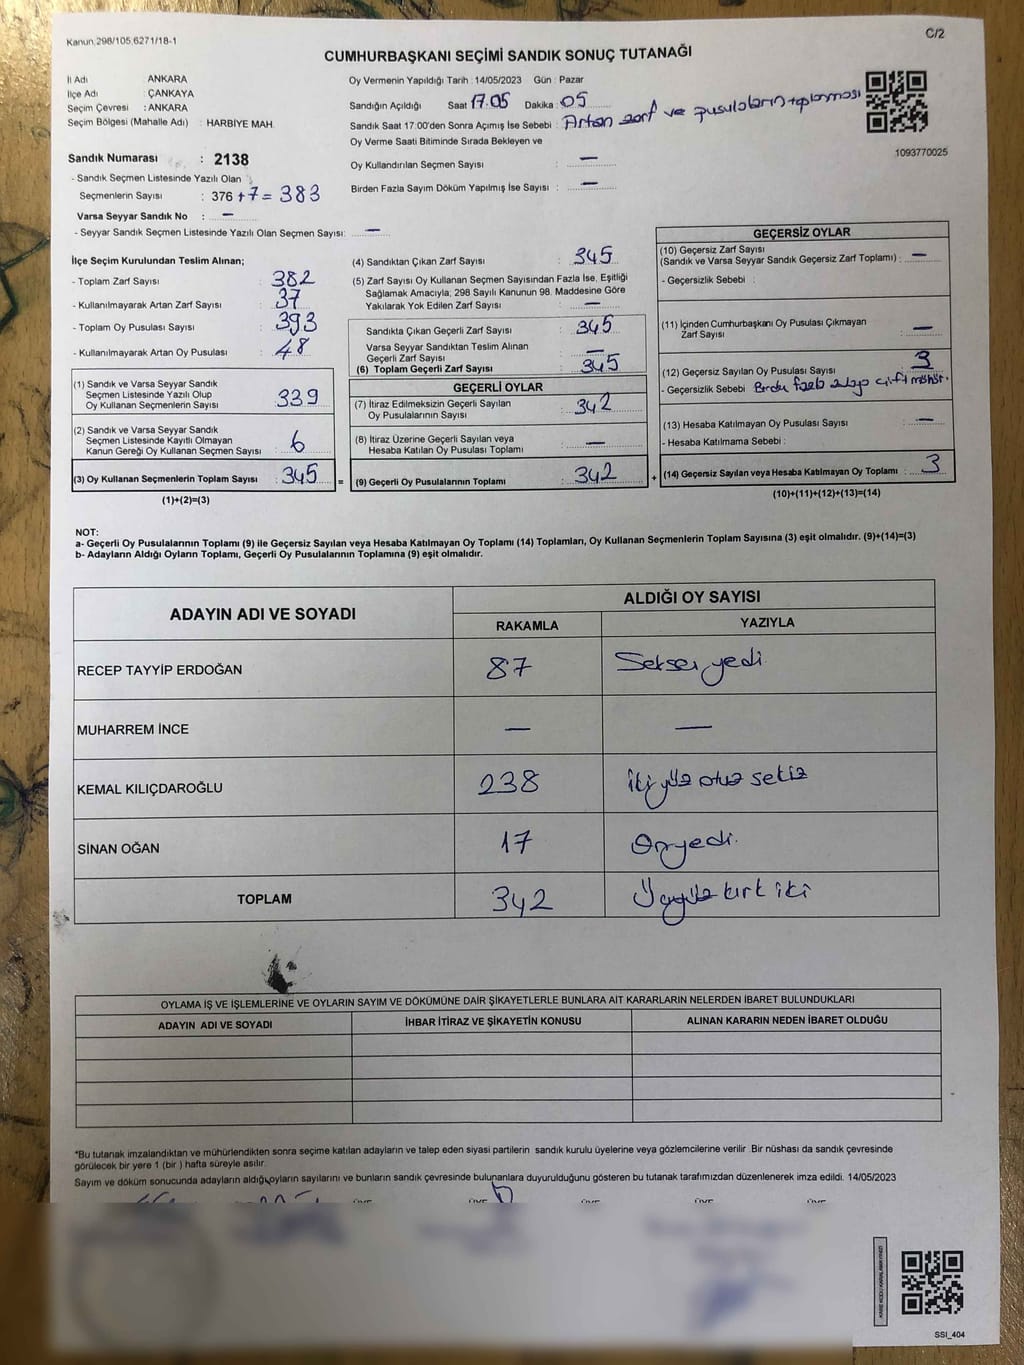 Kanun 298/105,6271/18-1
C/2
CUMHURBAŞKANI SEÇİMİ SANDIK SONUÇ TUTANAĞI
İl Adı : ANKARA
İlçe Adı : ÇANKAYA
Seçim Çevresi : ANKARA
Seçim Bölgesi (Mahalle Adı) : HARBİYE MAH.
Oy Vermenin Yapıldığı Tarih : 14/05/2023 Gün : Pazar
Sandığın Açıldığı Saat 17.05 Dakika : 05
Sandık Saat 17:00'den Sonra Açılmış İse Sebebi : Artan zarf ve pusulaların toplanması
Oy Verme Saati Bitiminde Sırada Bekleyen ve
Oy Kullandırılan Seçmen Sayısı : —
Birden Fazla Sayım Döküm Yapılmış İse Sayısı : —
1093770025
Sandık Numarası : 2138
- Sandık Seçmen Listesinde Yazılı Olan
Seçmenlerin Sayısı : 376 +7= 383
Varsa Seyyar Sandık No : —
- Seyyar Sandık Seçmen Listesinde Yazılı Olan Seçmen Sayısı: —
İlçe Seçim Kurulundan Teslim Alınan;
- Toplam Zarf Sayısı : 382
- Kullanılmayarak Artan Zarf Sayısı : 37
- Toplam Oy Pusulası Sayısı : 393
- Kullanılmayarak Artan Oy Pusulası : 48
(1) Sandık ve Varsa Seyyar Sandık
Seçmen Listesinde Yazılı Olup
Oy Kullanan Seçmenlerin Sayısı : 339
(2) Sandık ve Varsa Seyyar Sandık
Seçmen Listesinde Kayıtlı Olmayan
Kanun Gereği Oy Kullanan Seçmen Sayısı : 6
(3) Oy Kullanan Seçmenlerin Toplam Sayısı : 345 =
(1)+(2)=(3)
(4) Sandıktan Çıkan Zarf Sayısı : 345
(5) Zarf Sayısı Oy Kullanan Seçmen Sayısından Fazla İse, Eşitliği
Sağlamak Amacıyla, 298 Sayılı Kanunun 98. Maddesine Göre
Yakılarak Yok Edilen Zarf Sayısı : —
Sandıkta Çıkan Geçerli Zarf Sayısı : 345
Varsa Seyyar Sandıktan Teslim Alınan
Geçerli Zarf Sayısı : —
(6) Toplam Geçerli Zarf Sayısı : 345
GEÇERLİ OYLAR
(7) İtiraz Edilmeksizin Geçerli Sayılan
Oy Pusulalarının Sayısı : 342
(8) İtiraz Üzerine Geçerli Sayılan veya
Hesaba Katılan Oy Pusulası Toplamı : —
(9) Geçerli Oy Pusulalarının Toplamı : 342 +
GEÇERSİZ OYLAR
(10) Geçersiz Zarf Sayısı
(Sandık ve Varsa Seyyar Sandık Geçersiz Zarf Toplamı) : —
- Geçersizlik Sebebi :
(11) İçinden Cumhurbaşkanı Oy Pusulası Çıkmayan
Zarf Sayısı : —
(12) Geçersiz Sayılan Oy Pusulası Sayısı : 3
- Geçersizlik Sebebi çift mühür.
(13) Hesaba Katılmayan Oy Pusulası Sayısı : —
- Hesaba Katılmama Sebebi :
(14) Geçersiz Sayılan veya Hesaba Katılmayan Oy Toplamı : 3
(10)+(11)+(12)+(13)=(14)
NOT:
a- Geçerli Oy Pusulalarının Toplamı (9) ile Geçersiz Sayılan veya Hesaba Katılmayan Oy Toplamı (14) Toplamları, Oy Kullanan Seçmenlerin Toplam Sayısına (3) eşit olmalıdır. (9)+(14)=(3)
b- Adayların Aldığı Oyların Toplamı, Geçerli Oy Pusulalarının Toplamına (9) eşit olmalıdır.
ADAYIN ADI VE SOYADI
ALDIĞI OY SAYISI
RAKAMLA YAZIYLA
RECEP TAYYİP ERDOĞAN 87 Seksen yedi
MUHARREM İNCE — —
KEMAL KILIÇDAROĞLU 238 İki yüz otuz sekiz
SİNAN OĞAN 17 Onyedi.
TOPLAM 342 Üçyüz kırk iki
OYLAMA İŞ VE İŞLEMLERİNE VE OYLARIN SAYIM VE DÖKÜMÜNE DAİR ŞİKAYETLERLE BUNLARA AİT KARARLARIN NELERDEN İBARET BULUNDUKLARI
ADAYIN ADI VE SOYADI İHBAR İTİRAZ VE ŞİKAYETİN KONUSU ALINAN KARARIN NEDEN İBARET OLDUĞU
*Bu tutanak imzalandıktan ve mühürlendikten sonra seçime katılan adayların ve talep eden siyasi partilerin sandık kurulu üyelerine veya gözlemcilerine verilir. Bir nüshası da sandık çevresinde
görülecek bir yere 1 (bir ) hafta süreyle asılır.
Sayım ve döküm sonucunda adayların aldığı oyların sayılarını ve bunların sandık çevresinde bulunanlara duyurulduğunu gösteren bu tutanak tarafımızdan düzenlenerek imza edildi. 14/05/2023
SSI_404